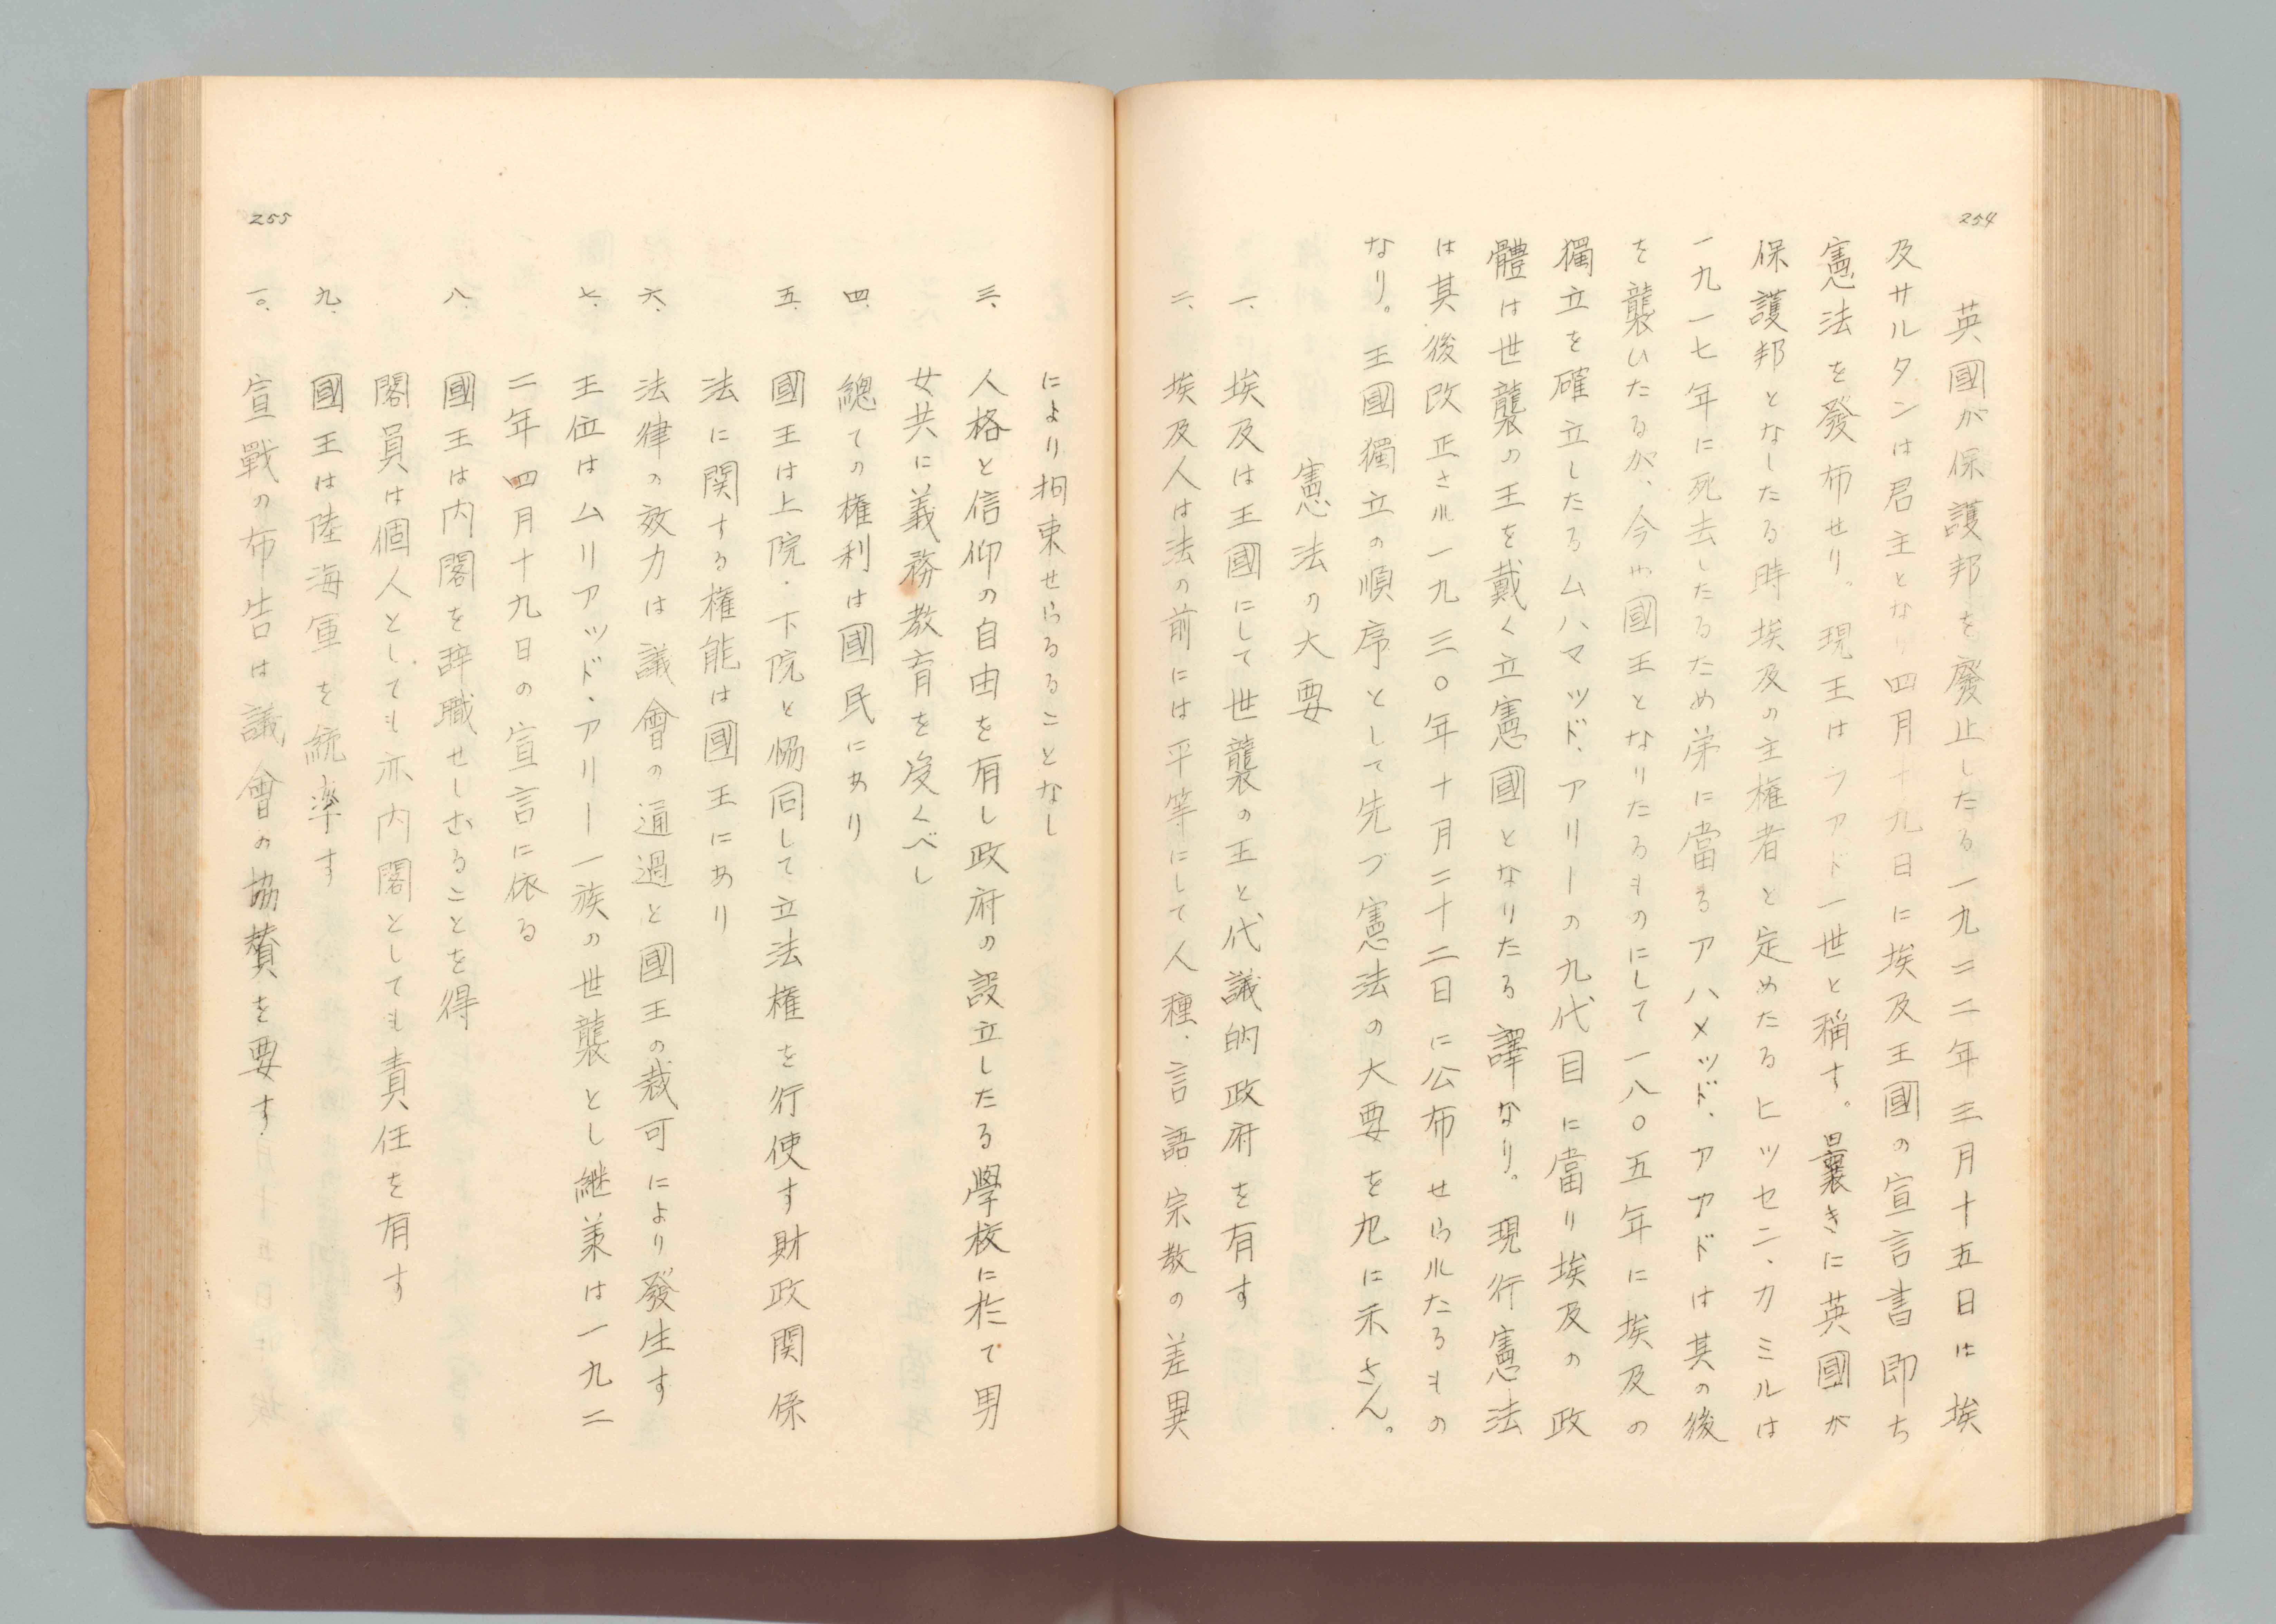 254
英國が保護邦を廢止したる一九二二年三月十五日は埃
及サルタンは君主となり四月十九日に埃及王國の宣言書即ち
憲法を發布せり。現王はフアド一世と稱す。曩きに英國が
保護邦となしたる時埃及の主権者と定めたるヒツセニ、カミルは
一九一七年に死去したるため弟に當るアハメッド、アアドは其の後
を襲ひたるが、今や國王となりたるものにして一八〇五年に埃及の
獨立を確立したるムハマッド、アリーの九代目に當り埃及の政
體は世襲の王を戴く立憲國となりたる譯なり。現行憲法
は其後改正さル一九三〇年十月二十二日に公布せらルたるもの
なり。王國獨立の順序として先づ憲法の大要を左に示さん。
憲法の大要
一、埃及は王國にして世襲の王と代議的政府を有す
二、埃及人は法の前には平等にして人種、言語、宗教の差異
255
により拘束せらるることなし
三、人格と信仰の自由を有し政府の設立したる學校に於て男
女共に義務教育を受くべし
四、總ての権利は國民にあり
五、國王は上院・下院と恊同して立法権を行使す財政関係
法に関する権能は國王にあり
六、法律の效力は議會の通過と國王の裁可により發生す
七、王位はムリアッド・アリー一族の世襲とし継兼は一九二
二年四月十九日の宣言に依る
八、國王は内閣を辞職せしむることを得
閣員は個人としても亦内閣としても責任を有す
九、國王は陸海軍を統率す
一〇、宣戰の布告は議會の協賛を要す